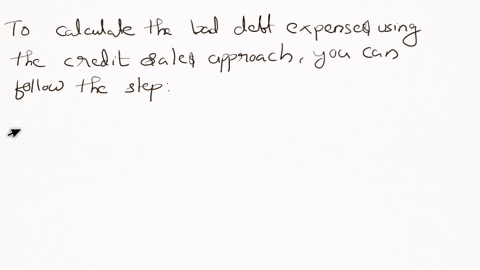 To calculate the bad debt expenses using
the credit sales approach, you can
follow the step: